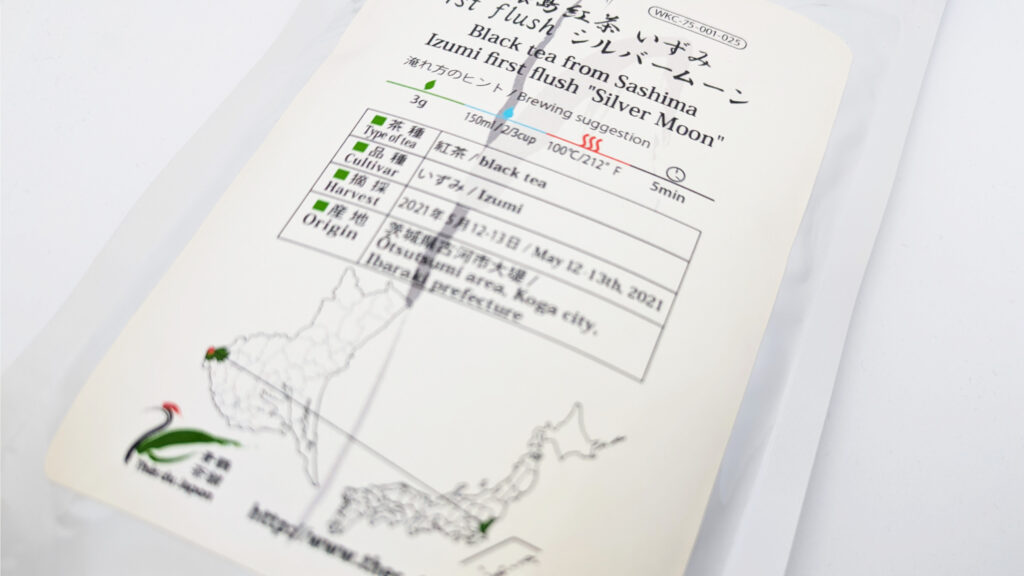 島紅茶 いずみ
WKC-75-001-025
1st flush シルバームーン
Black tea from Sashima
Izumi first flush "Silver Moon"
淹れ方のヒント / Brewing suggestion
3g 150ml / 2/3cup 100℃/212° F 5min
茶 種
Type of tea
紅茶 / black tea
品 種
Cultivar
いずみ / Izumi
摘 採
Harvest
2021年 5月12-13日 / May 12-13th, 2021
産 地
Origin
茨城県古河市大堤 /
Ōtsutsumi area, Koga city,
Ibaraki prefecture
Thés du Japon
http://www.thes